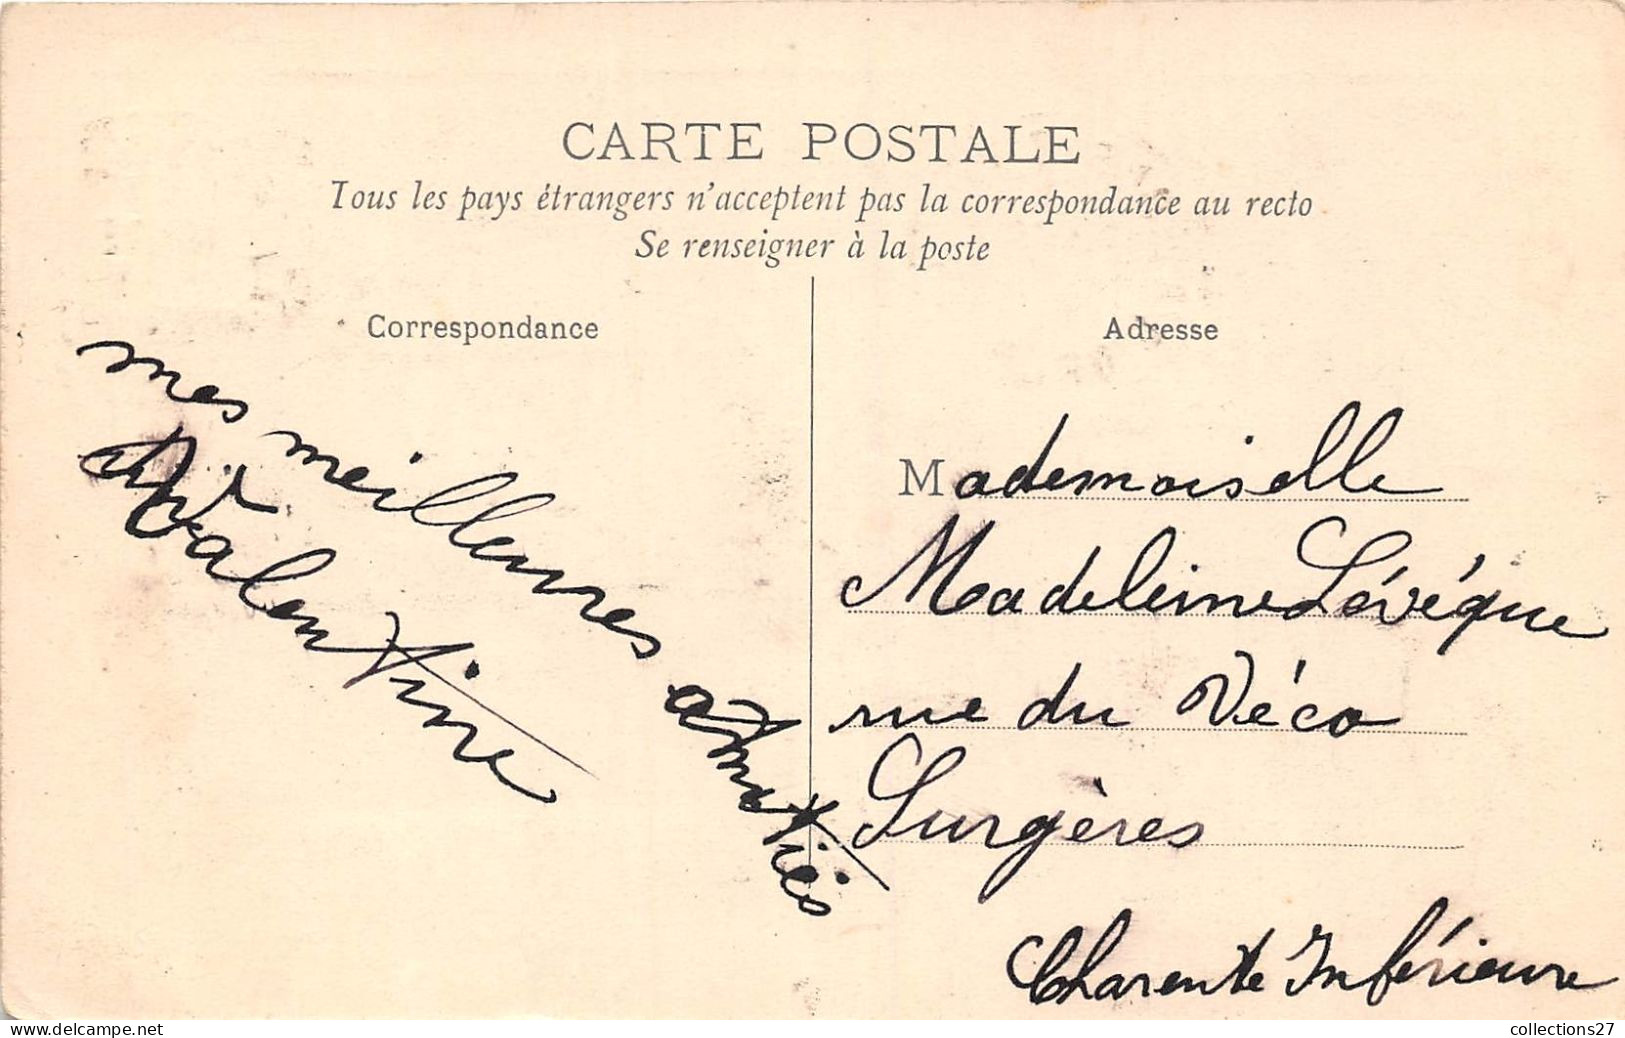 CARTE POSTALE
Tous les pays étrangers n'acceptent pas la correspondance au recto
Se renseigner à la poste
Correspondance
mes meilleures amitiés
Valentine
Adresse
Mademoiselle
Madeleine Lévéque
rue du Véco
Surgères
Charente Inférieure
collections27